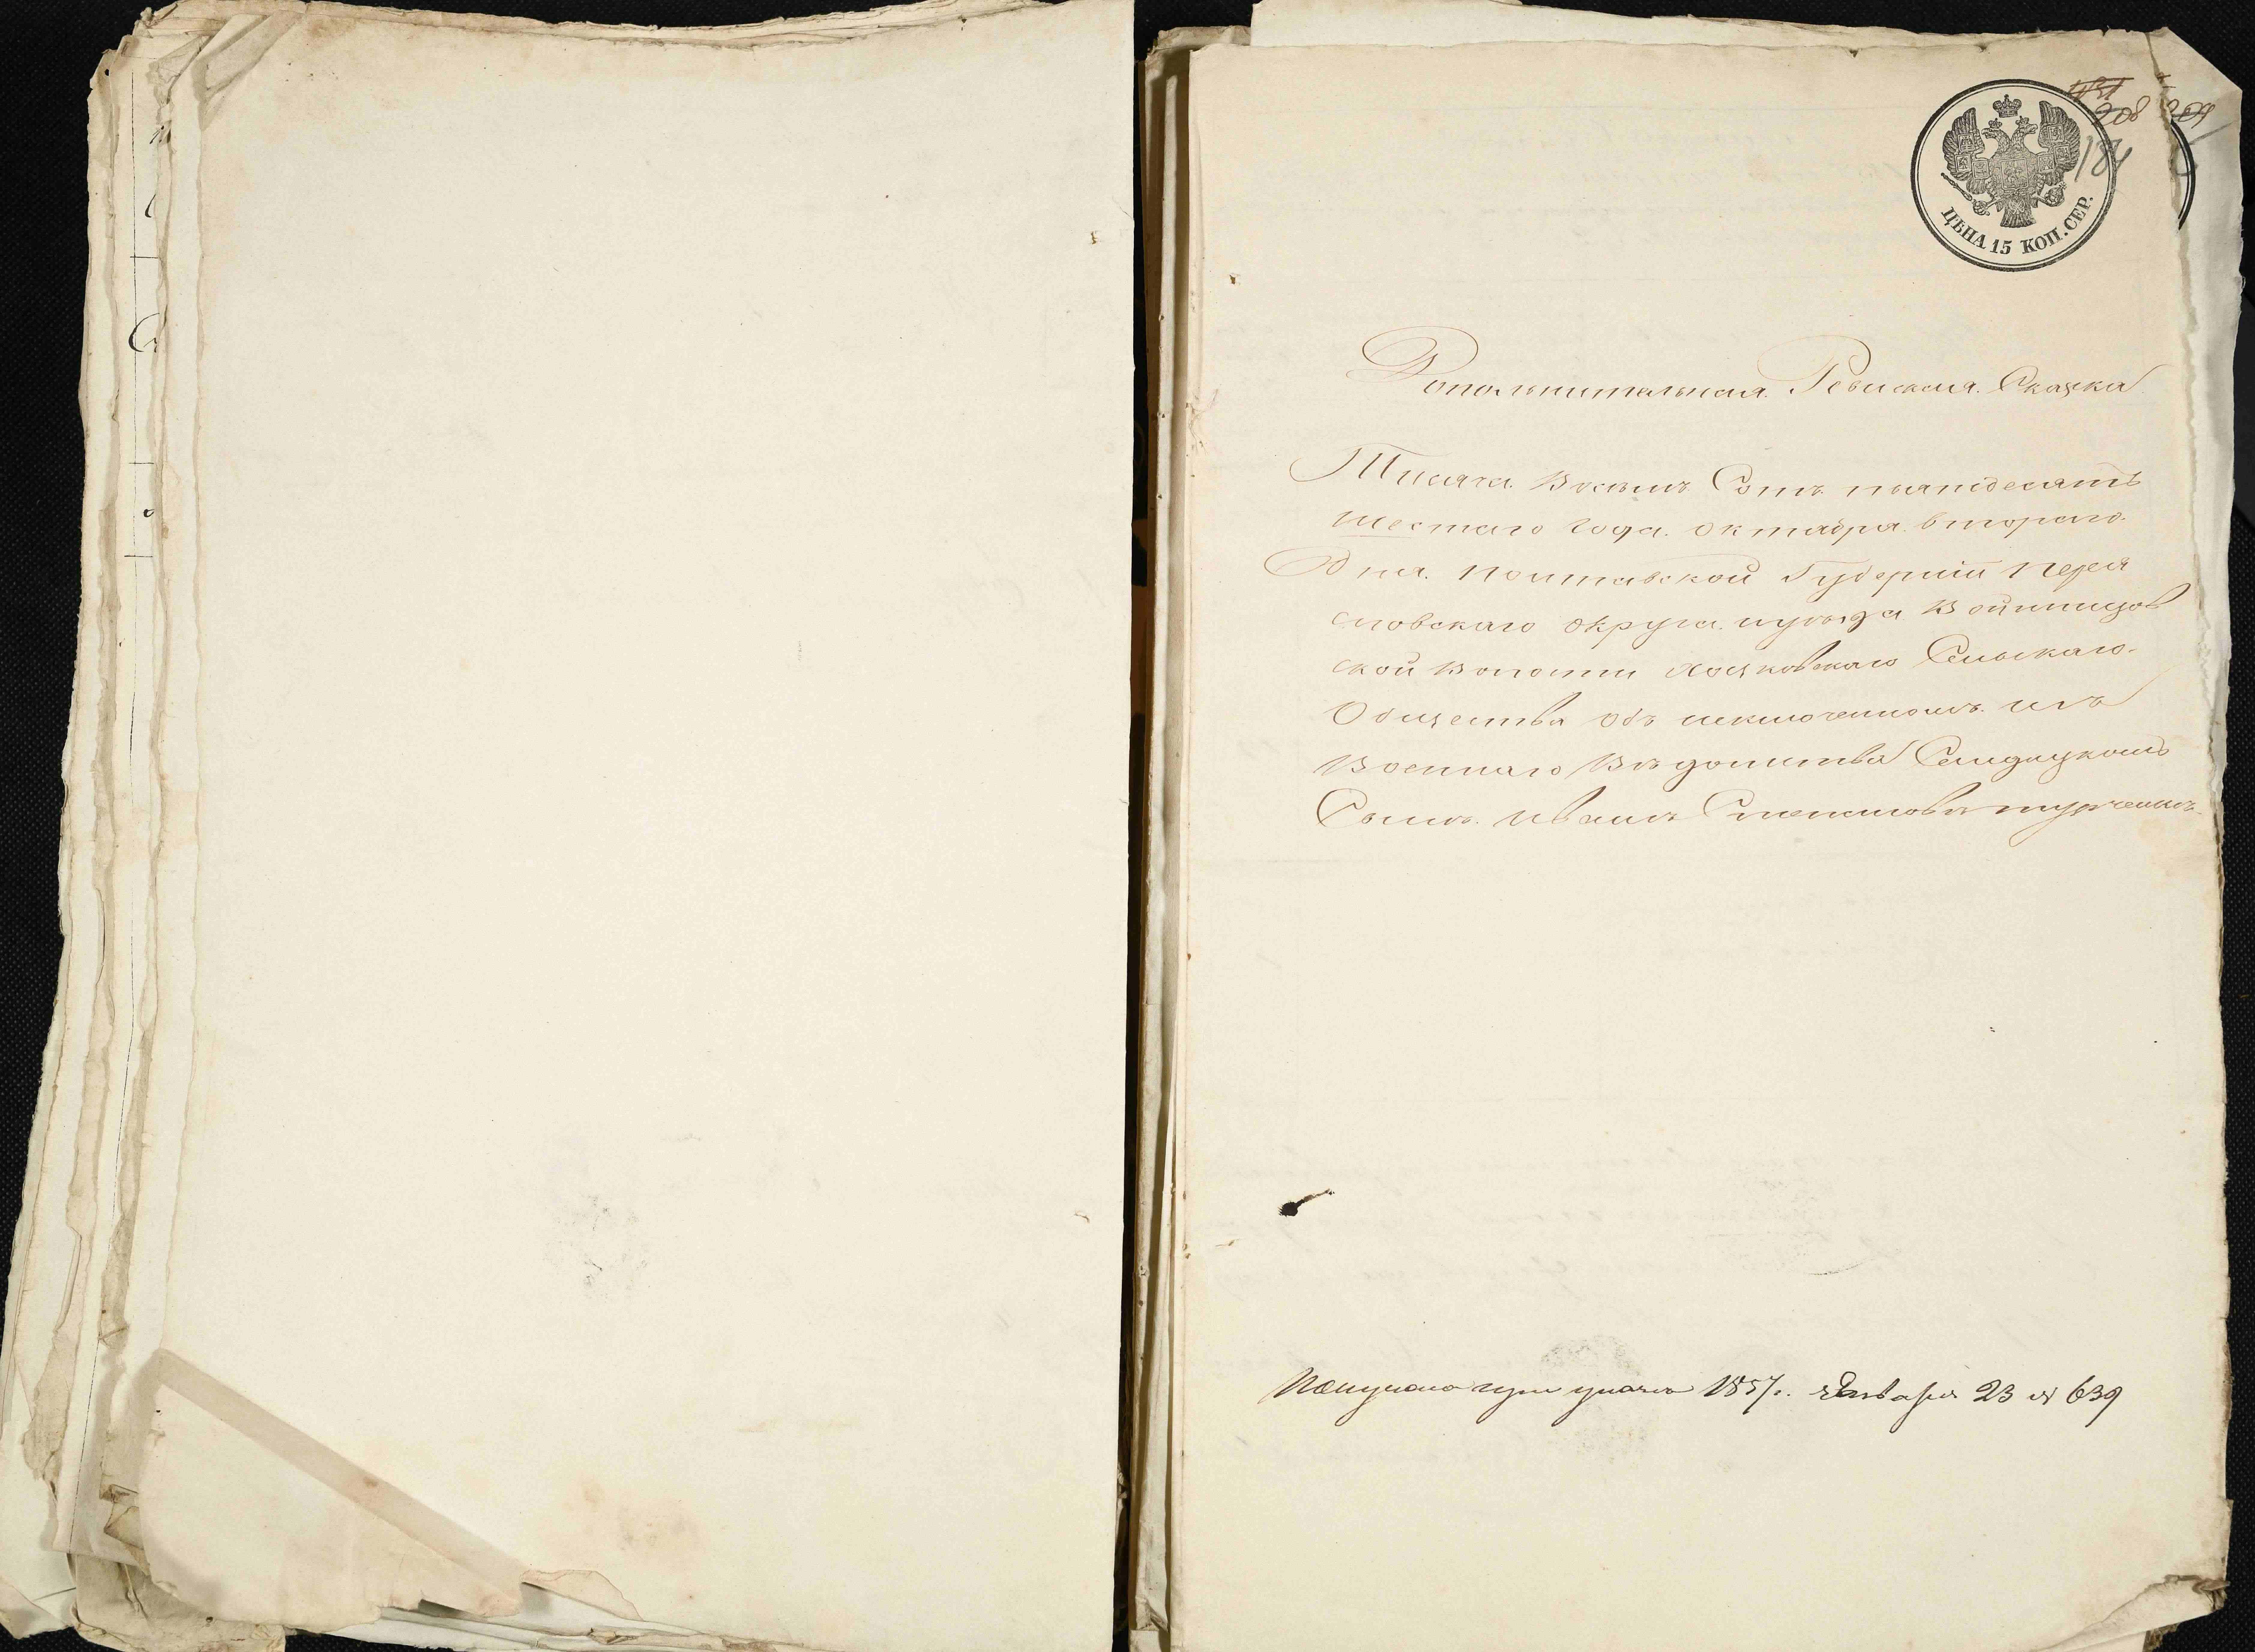 431
208 209
184
ЦѢНА 15 КОП. СЕР.
Дополнительная Ревиская Сказка
Тисяча Восемь Сотъ пьятдесятъ
шестаго года октабря второго
Дня Полтавской Губерніи Перея
словскаго округа иуезда Войтницов
ской Волости Хоцковскаго Сельскаго
Общества Объ исключенномъ изъ
Военнаго Вѣдомства Солдацкомъ
Сынѣ Иванѣ Степановѣ
при указѣ 1857 г. Января 23 № 639